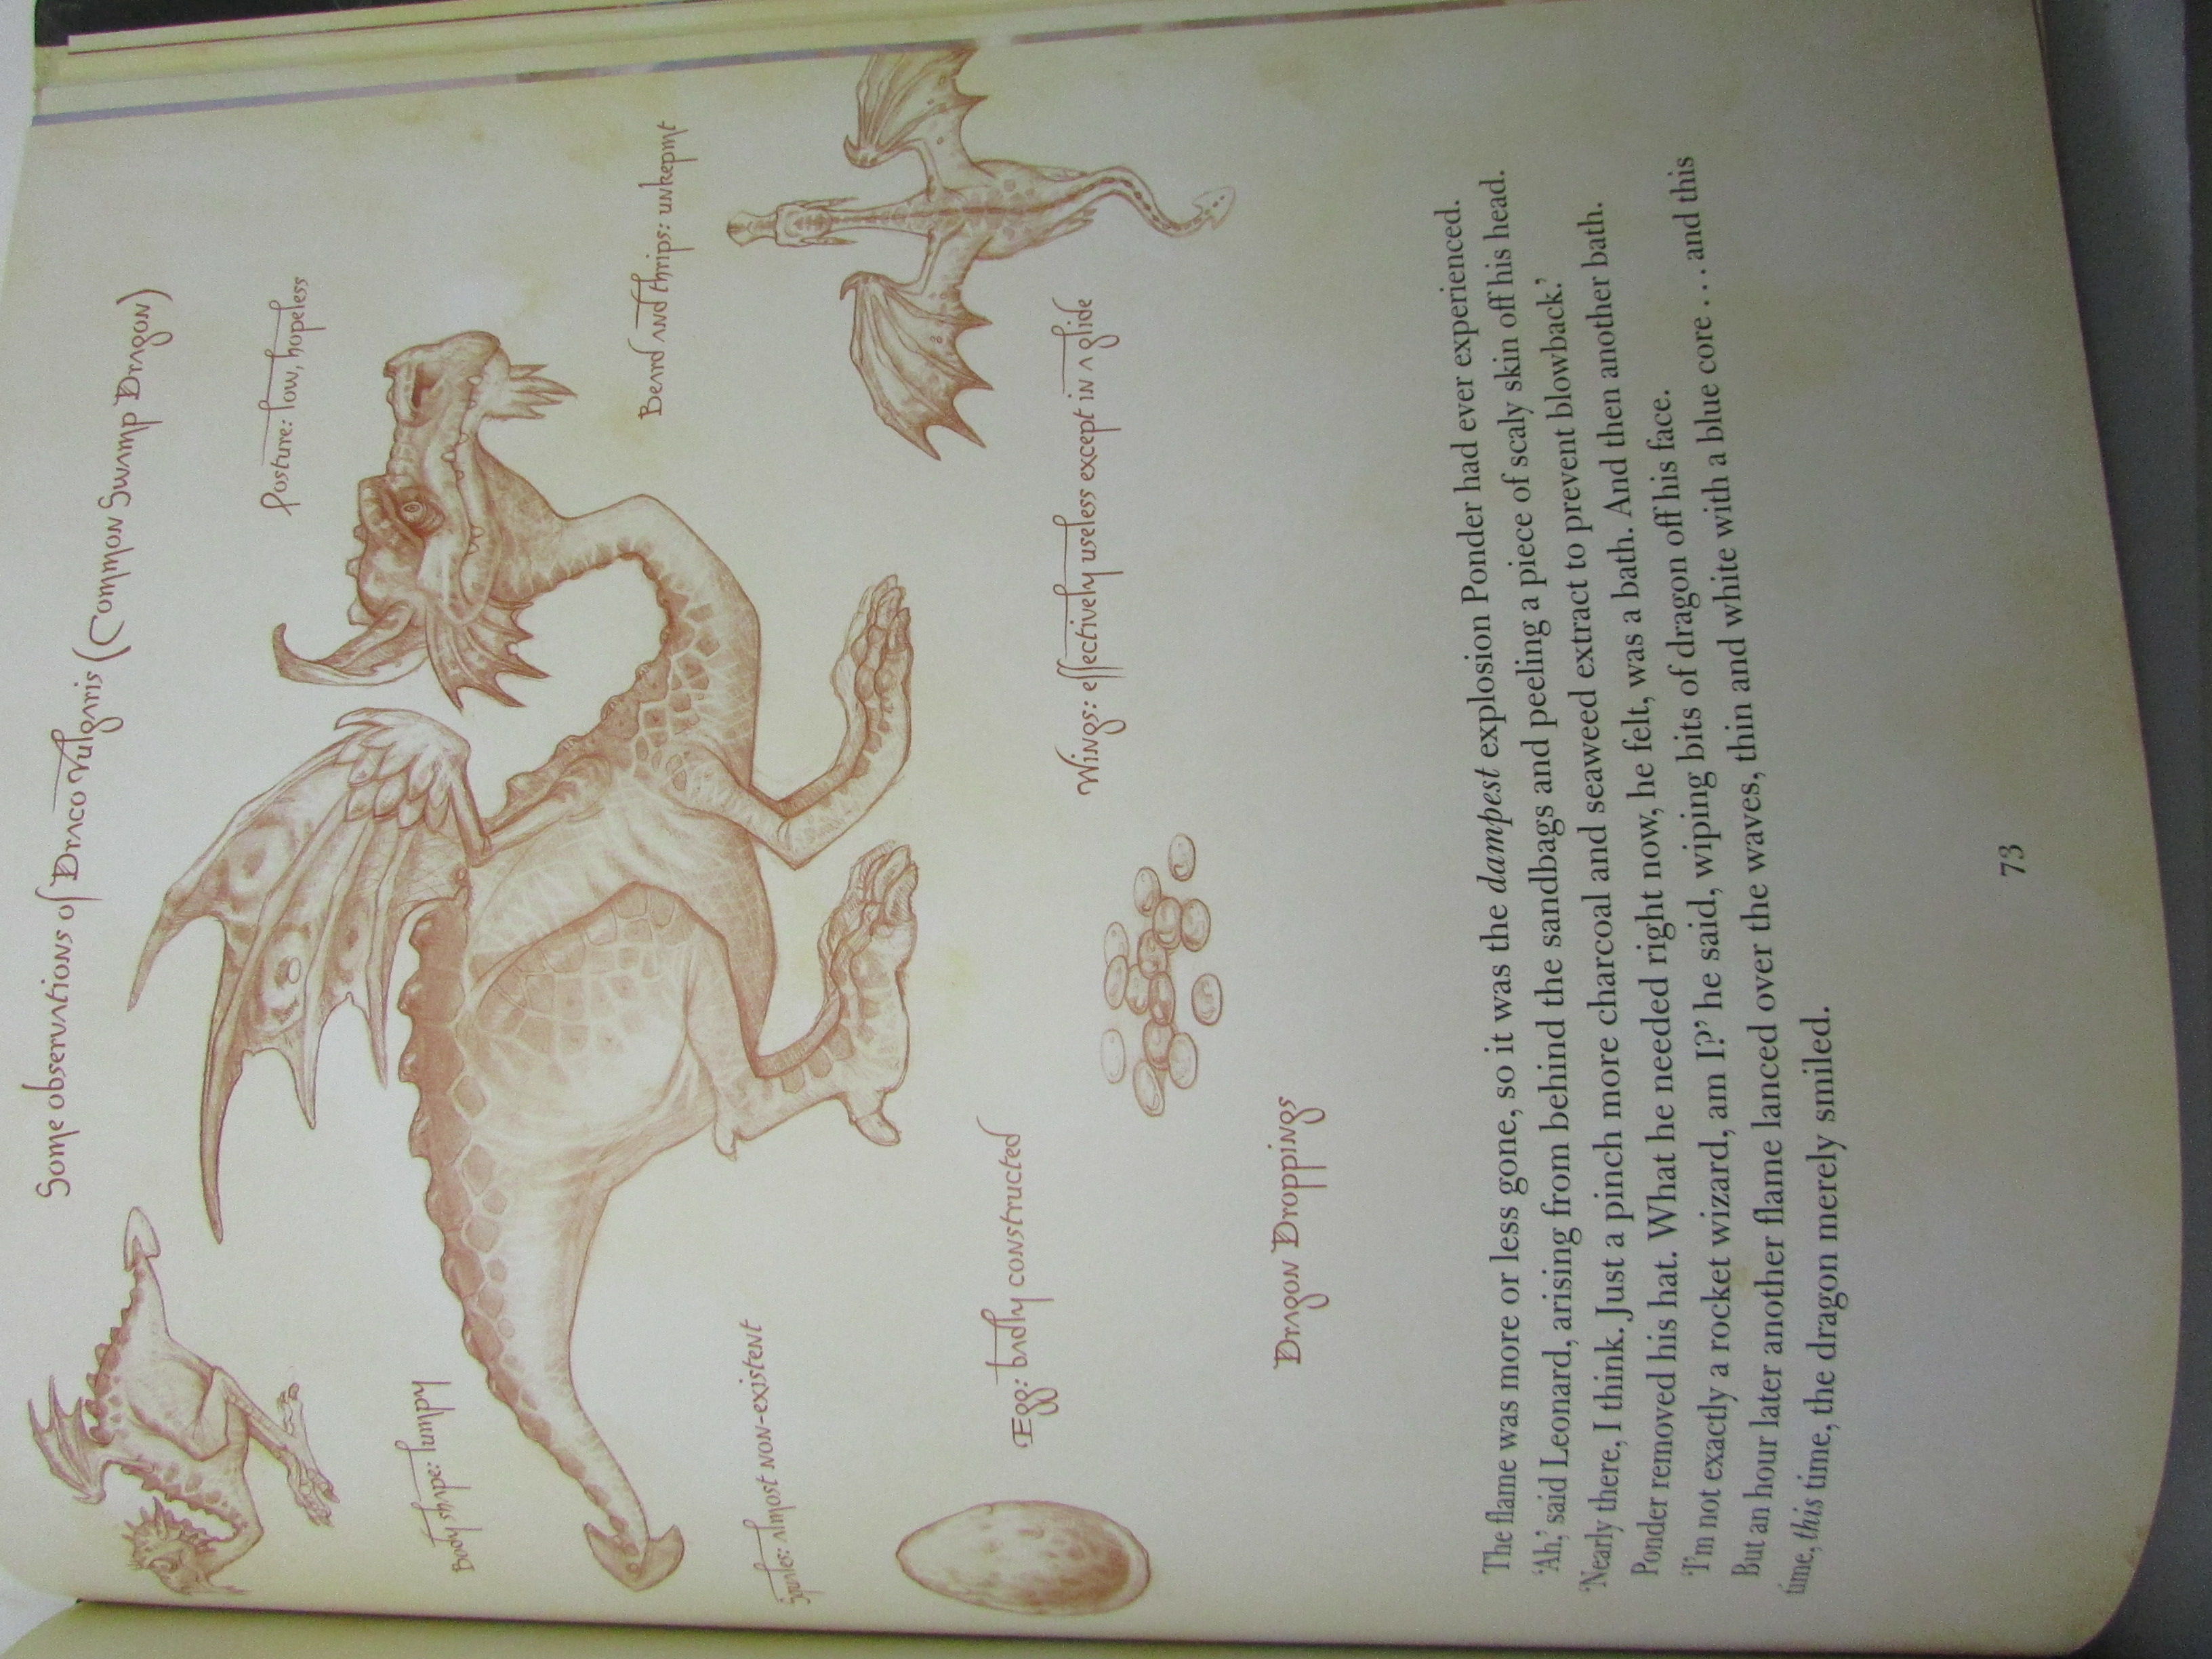 Some observations of Draco Vulgaris (Common Swamp Dragon)
Posture: low, hopeless
Body shape: lumpy
Beard and thrips: unkepmt
Spunles: almost non-existent
Wings: effectively useless except in a glide
Egg: badly constructed
Dragon Droppings
The flame was more or less gone, so it was the dampest explosion Ponder had ever experienced.
‘Ah,’ said Leonard, arising from behind the sandbags and peeling a piece of scaly skin off his head.
‘Nearly there, I think. Just a pinch more charcoal and seaweed extract to prevent blowback.’
Ponder removed his hat. What he needed right now, he felt, was a bath. And then another bath.
‘I’m not exactly a rocket wizard, am I?’ he said, wiping bits of dragon off his face.
But an hour later another flame lanced over the waves, thin and white with a blue core . . . and this
time, this time, the dragon merely smiled.
73